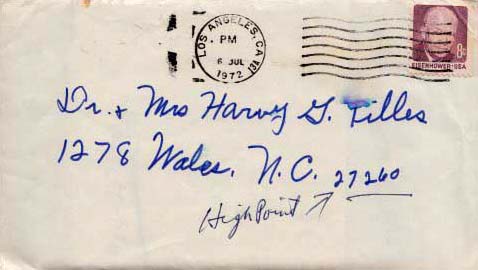 LOS ANGELES, CA
PM
6 JUL
1972
8c
EISENHOWER·USA
Dr. + Mrs Harvy G. Tilles
1278 Wales, N.C. 27260
High Point